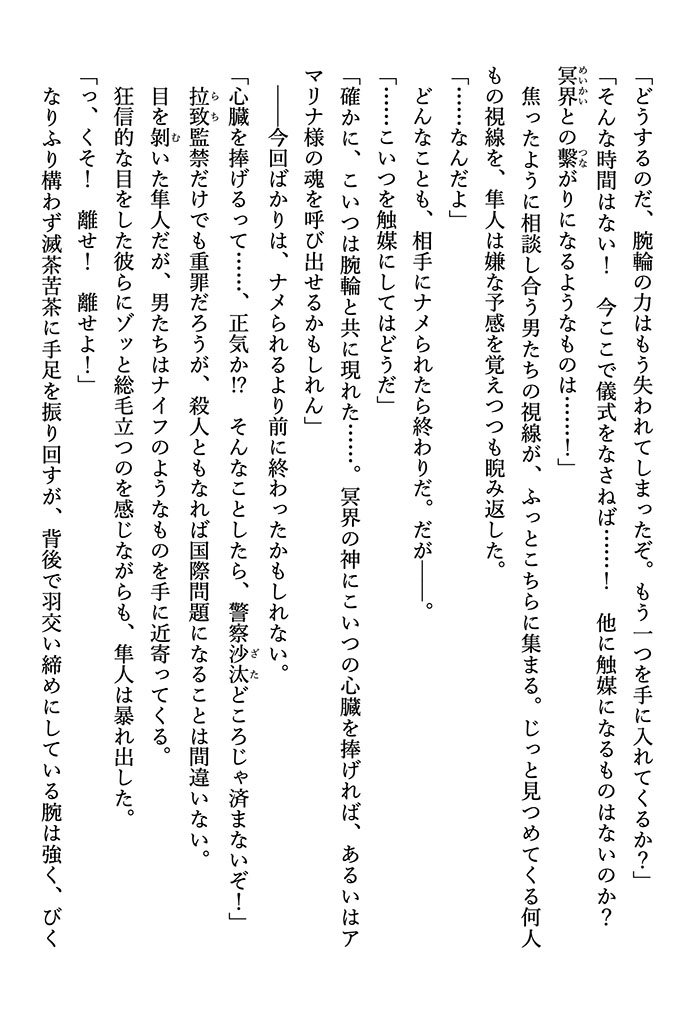 「どうするのだ、腕輪の力はもう失われてしまったぞ。もう一つを手に入れてくるか？」
「そんな時間はない！　今ここで儀式をなさねば……！　他に触媒になるものはないのか？
冥界との繋がりになるようなものは……！」
　焦ったように相談し合う男たちの視線が、ふっとこちらに集まる。じっと見つめてくる何人
もの視線を、隼人は嫌な予感を覚えつつも睨み返した。
「……なんだよ」
　どんなことも、相手にナメられたら終わりだ。だが――。
「……こいつを触媒にしてはどうだ」
「確かに、こいつは腕輪と共に現れた……。冥界の神にこいつの心臓を捧げれば、あるいはア
マリナ様の魂を呼び出せるかもしれん」
　――今回ばかりは、ナメられるより前に終わったかもしれない。
「心臓を捧げるって……、正気か!?　そんなことしたら、警察沙汰どころじゃ済まないぞ！」
　拉致監禁だけでも重罪だろうが、殺人ともなれば国際問題になることは間違いない。
　目を剝いた隼人だが、男たちはナイフのようなものを手に近寄ってくる。
　狂信的な目をした彼らにゾッと総毛立つのを感じながらも、隼人は暴れ出した。
「っ、くそ！　離せ！　離せよ！」
　なりふり構わず滅茶苦茶に手足を振り回すが、背後で羽交い締めにしている腕は強く、びく